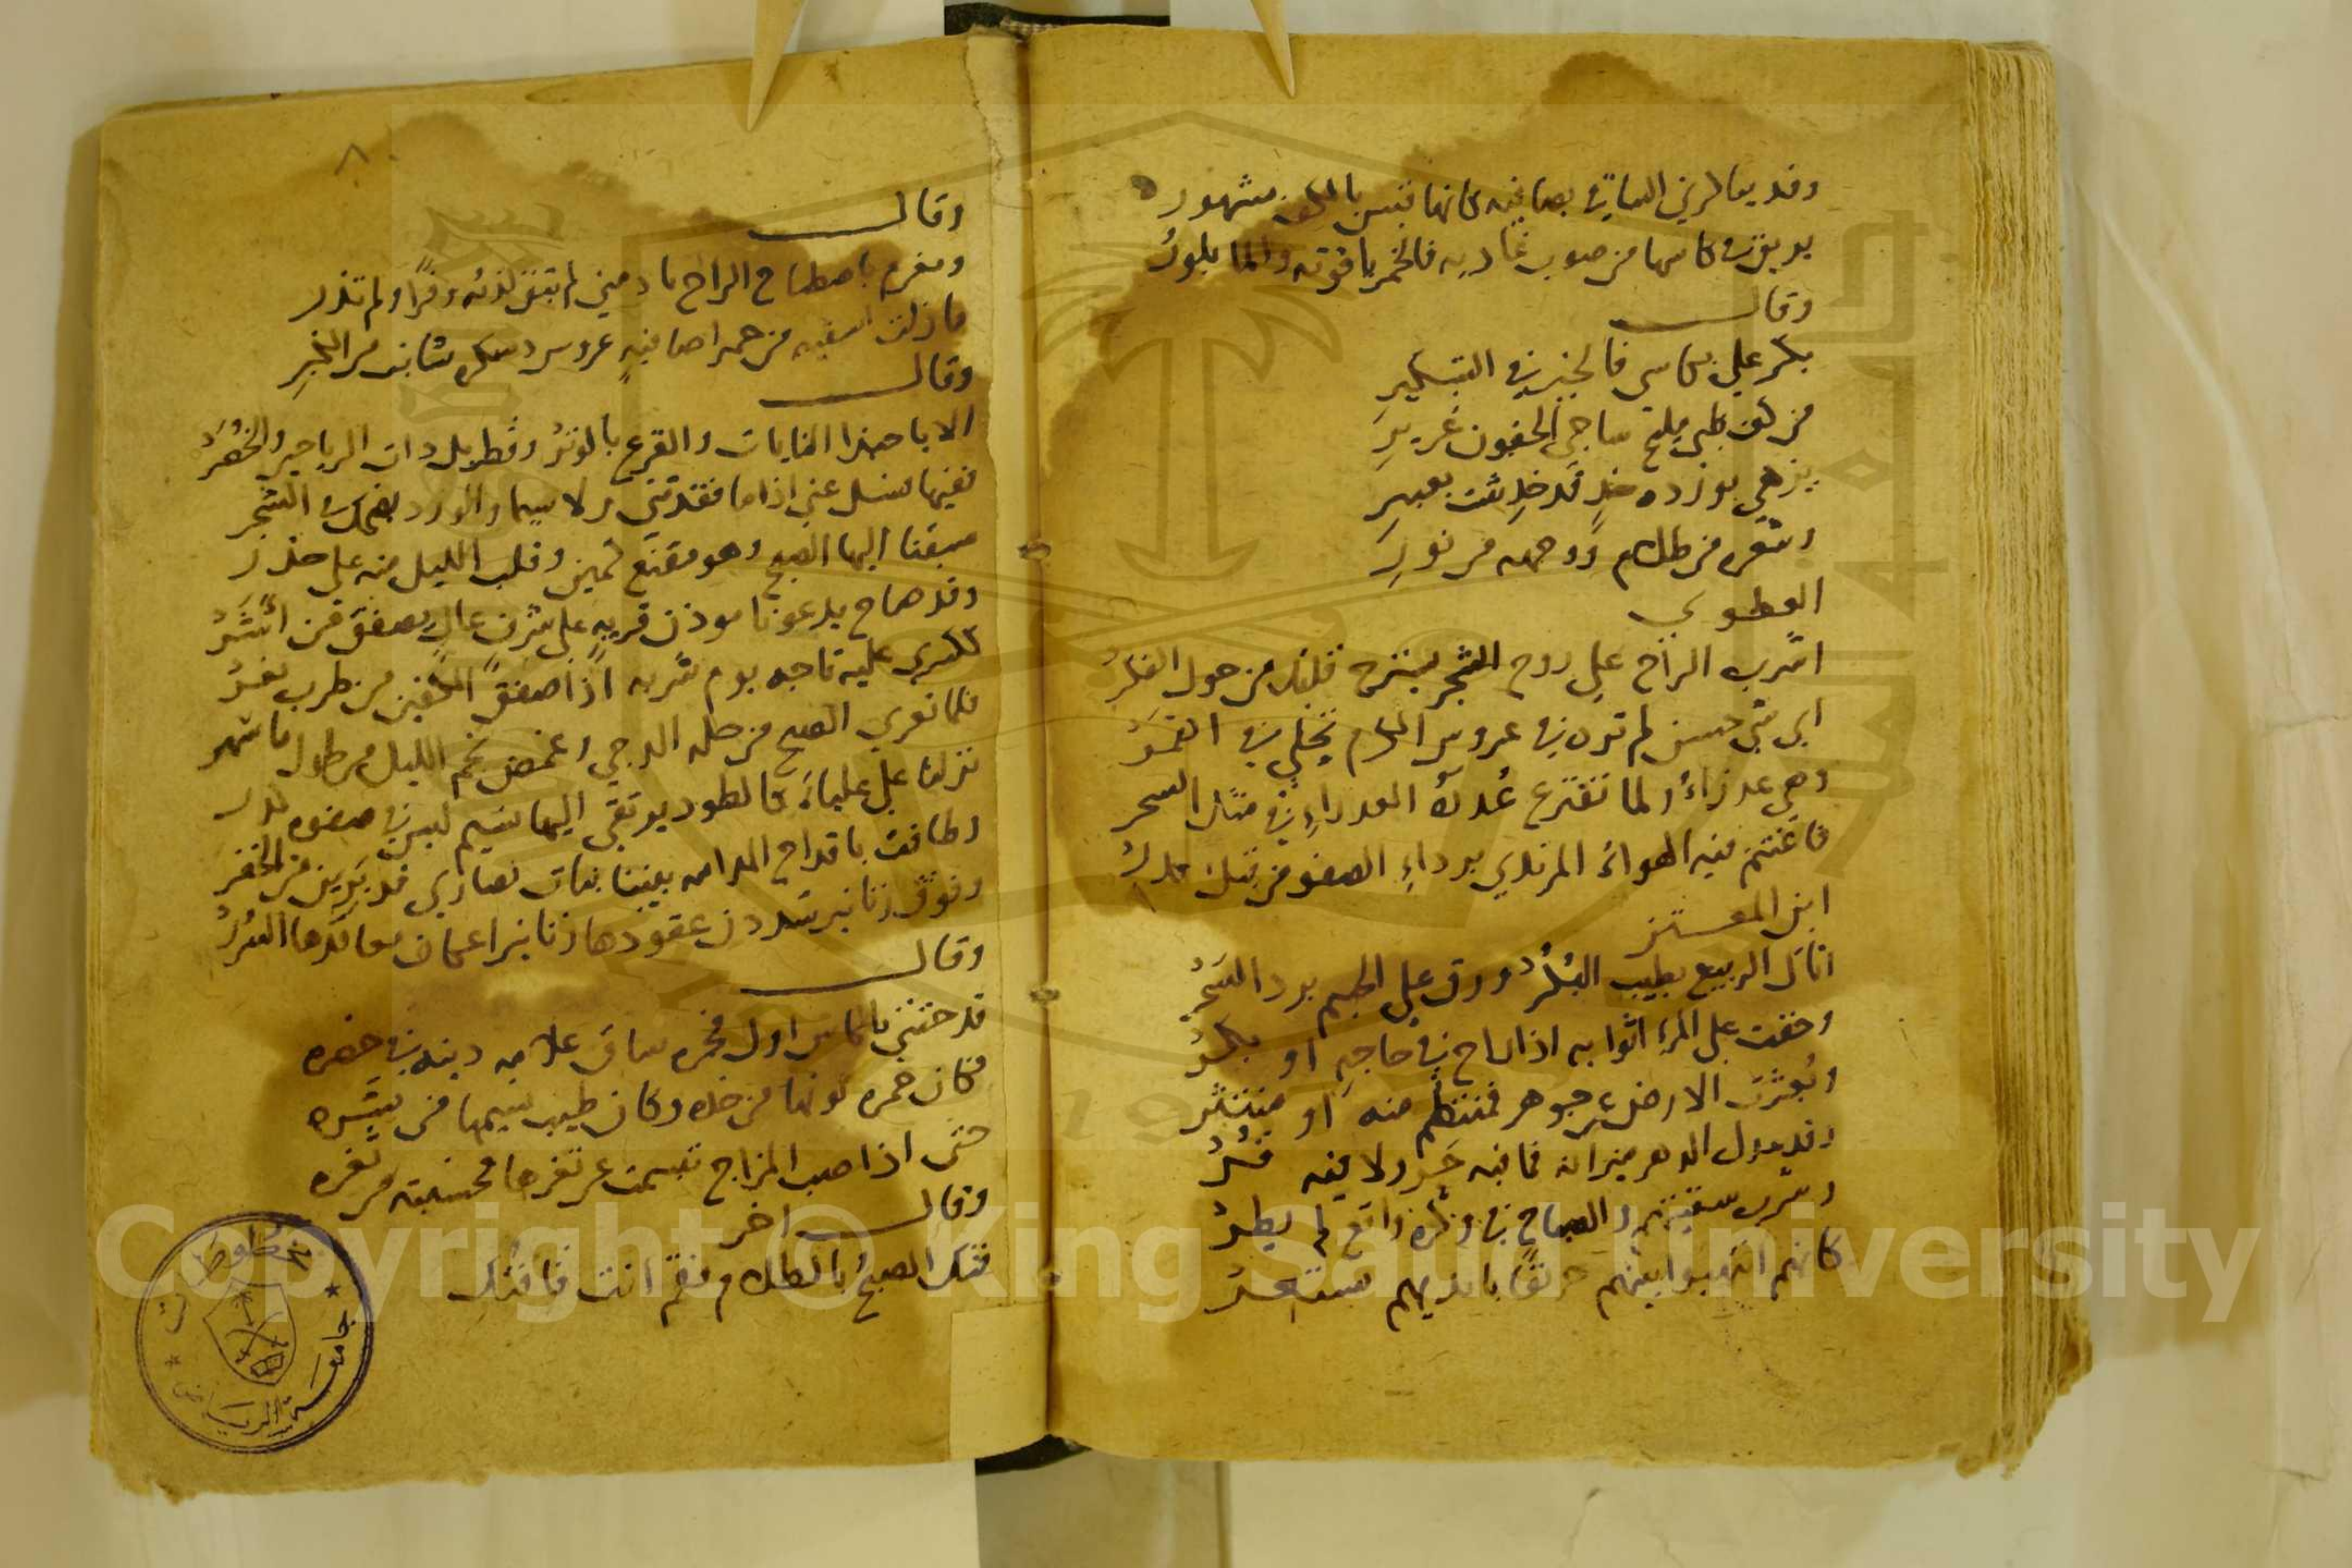 وقد يباكرني الساقي بصافية كانها قبس بالكف مشهور
يريق في كاسها من صوب غادية فالخمر ياقوتة والما بلور
وقال
بكر علي بكاسي فالخير في التبكير
من كف ظبي مليح ساجي الجفون غرير
يزهي بوردة خد قد خدشت بعبير
وشعره من ظلام ووجهه من نور
العطوي
اشرب الراح على روح الشجر ينتزح قلبك من حول الفكر
اي شي حسن لم تره في عروس الكرم تجلي في القمر
وهي عذراء ولما تفترع عذرة العذراء في مثل السحر
فاغتنم فيه الهواء المرتدي برداء الصفو من قبل كدر
ابن المعتز
اتاك الربيع بطيب البكر ورق على الجسم برد السحر
وخفت على المرء اثوابه اذا راح في حاجة او بكر
وبعثرت الارض عن جوهر فمنتظم منه او منتثر
وقد عدل الدهر ميزانه فما فيه حر ولا فيه قر
وشرب سقيتهم والصباح في وكره واقع لم يطر
كانهم انتهبوا بينهم حريقا بايديهم يستعر
٨
وقال
ومغرم باصطباح الراح نادمني لم تبق لذته وفرا ولم تذر
ما زلت اسقيه من حمرا صافية عروس دسكرة شابت من الكبر
وقال
الا يا حبذا النايات والقرع بالوتر وقطربل ذات الرياحين والخضر
ففيها فسل عني اذا ما فقدتني ولا سيما والورد يضحك في الشجر
سبقنا اليها الصبح وهو مقنع كمين وقلب الليل منه على حذر
وقد صاح يدعونا موذن قرية على شرف عال يصفق من اشر
ككسرى عليه تاجه يوم شربه اذا صفق الكفين من طرب نعر
فلما تعرى الصبح من حلة الدجي وغمض نجم الليل من طول ما سهر
نزلنا على علياء كالطود يرتقي اليها نسيم ليس في صفوه كدر
وطافت باقداح المدامه بيننا بنات نصارى قد بدين من الخفر
وفوق زنانير شددن عقودها زنانير اعكان معاقدها السرر
وقال
قد حثني بالكاس اول فجره ساق علامة دينه في خصره
فكان حمرة لونها من خده وكان طيب نسيمها من نشره
حتى اذا صب المزاج تبسمت عن ثغرها فحسبته من ثغره
وقال اخر
فتك الصبح بالظلام فقم انت فافتك
مخطوطات
جامعة الرياض
Copyright © King Saud University